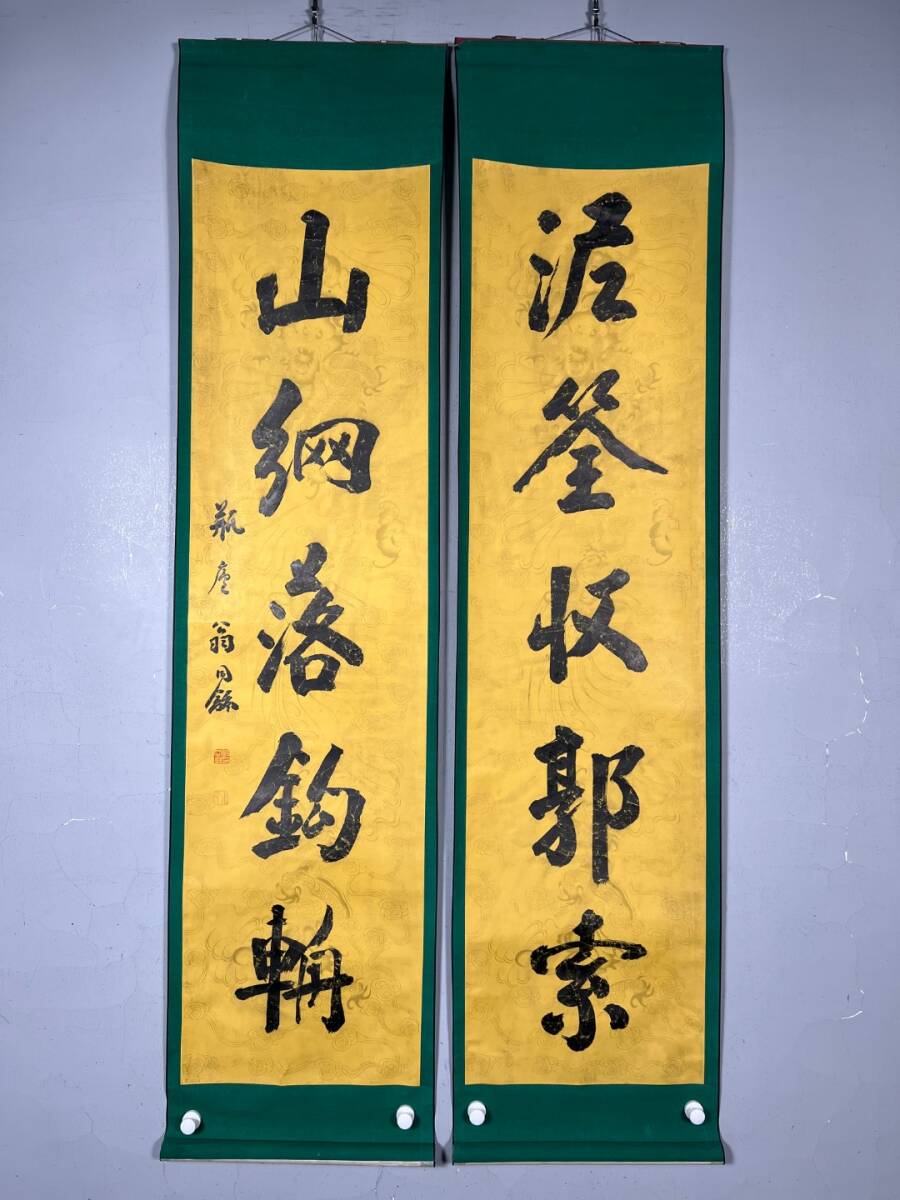 泥筌收郭索
山網落鈎輈
瓶廬 翁同龢